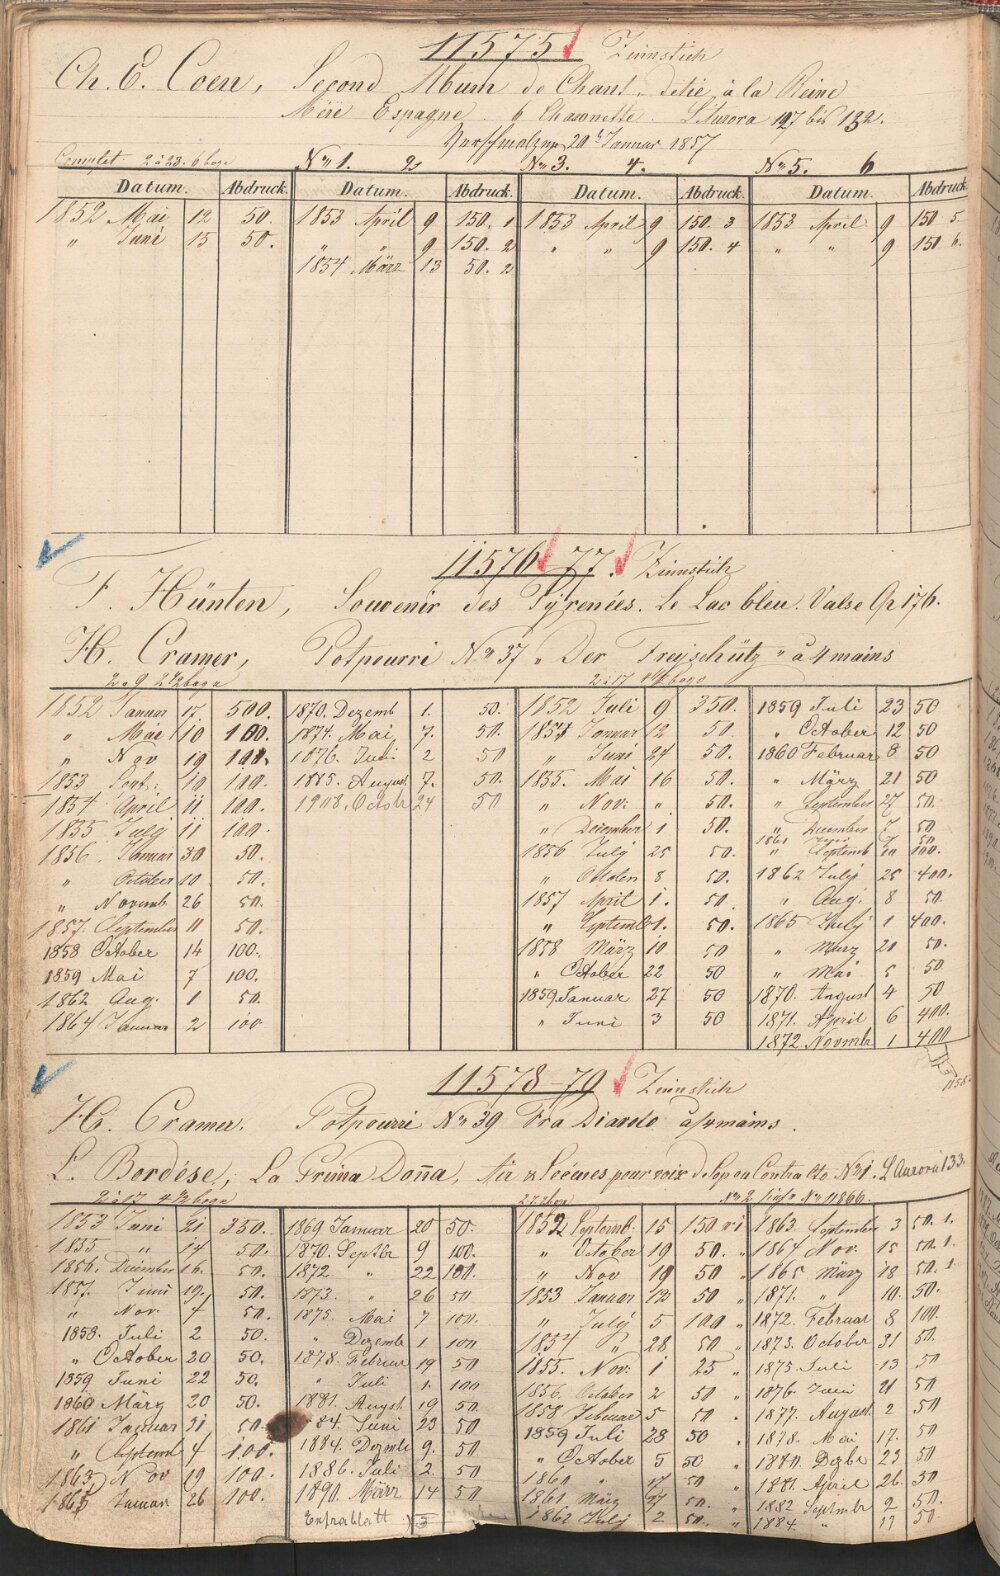 11575 Zinnstich
Ch. E. Coen, Second Album de Chant, dédié à la Reine
Mère Espagne. 6 Chansonette. L'Aurora 127 bis 132.
20t Januar 1857
Complet 2 à 23. 6 boge No 1. 2 No 3. 4. No 5. 6
Datum. Abdruck. Datum. Abdruck. Datum. Abdruck. Datum. Abdruck.
1852 Mai 12 50. 1853 April 9 150. 1 1853 April 9 150. 3 1853 April 9 150 5
" Juni 15 50. " " 9 150. 2 " " 9 150. 4 " " 9 150 6.
1854 März 13 50. 2
11576-77. Zinnstich
F. Hünten, Souvenir des Pyrenées. Le Lac bleu. Valse Op 176.
H. Cramer, Potpourri No 37 " Der Freyschütz " à 4 mains
2 a 9 2 1/2 boge 2 à 17 4 1/2 boge
1852 Januar 17 500. 1870. Dezemb 1. 50. 1852 Juli 9 350. 1859 Juli 23 50
" Mai 10 100. 1874. Mai 7. 50. 1854 Januar 12 50. " October 12 50
" Nov 19 100. 1876. Juni 2 50 " Juni 24 50. 1860 Februar 8 50
1853 Sept. 10 100. 1885. August 7. 50. 1855. Mai 16 50. " März 21 50
1854 April 11 100. 1908. Octob 24 50 " Nov: " 50. " September 27 50.
1855 July 11 100. " December 1 50. " December 7 50
1856. Januar 30 50. 1856 July 25 50. 1861 " Septemb 20 100.
" October 10. 50. " Octen 8 50. 1862 July 25 400.
" Novemb 26 50. 1857 April 1. 50. " Aug. 8 50.
1857. September 11 50 " Septemb 1. 50. 1865 July 1 400.
1858 October 14 100. 1858 März 10 50 " März 20 50.
1859 Mai 7 100. " October 22 50 " Mai 5 50
1862 Aug. 1 50. 1859 Januar 27 50 1870. August 4 50
1864 Januar 2 100 " Juni 3 50 1871. April 6 400.
1872. Novmb 1 400
11578-79 Zinnstich
H. Cramer. Potpourri No 39 Fra Diavolo à 4 mains.
L. Bordèse, La Prima Doña, Air & Scènes pour voix de Sop ou Contralto. No 1. L'Aurora 133.
2 à 17 4 1/2 boge 2 7 2 boge No 2 siehe No 11866.
1853 Juni 21 350. 1869 Januar 20 50. 1852 Septemb. 15 150 1863. September 3 50. 1.
1855 " 14 50. 1870. Septbr 9 100. " October 19 50. " 1864 Nov. 15 50. 1
1856. December 16. 50. 1872 " 22 100. " Nov 19 50 " 1865 März 18 50. 1
1857. Juni 19. 50. 1873. " 26 50 1853 Januar 12 50 " 1871. " 10. 50.
" Nov. 7 50. 1875. Mai 7 100. " July 5 100 " 1872. Februar 8 100
1858. Juli 2 50. " Dezemb 1 100 1854 " 28 50 " 1873. October 31 50.
" October 20 50. 1878. Februar 19 50 1855. Nov. 1 25 " 1875. Juli 13 50
1859 Juni 22 50. " Juli 1. 100 1856. October 2 50 " 1876 Juni 21 50
1860 März 20 50. 1881. August 19 50. 1858 Februar 5 50 " 1877. August 2 50
1861 Januar 31 50 84. Juni 23 50 1859 Juli 28 50 " 1878. Mai 17. 50.
" Septemb 4 100. 1884. Dezmb 9. 50 " October 5 50 " 1880. Dezbr 23 50
1863 Nov 19 100. 1886. Juli 2. 50 1860 " 17 50 " 1881. April 26. 50
1865 Januar 26 100. 1890. März 14 50 1861 März 27 50. " 1882 Septmbr 2 50.
Extrablatt 1862 July 2 50. " 1884. " 17 50.